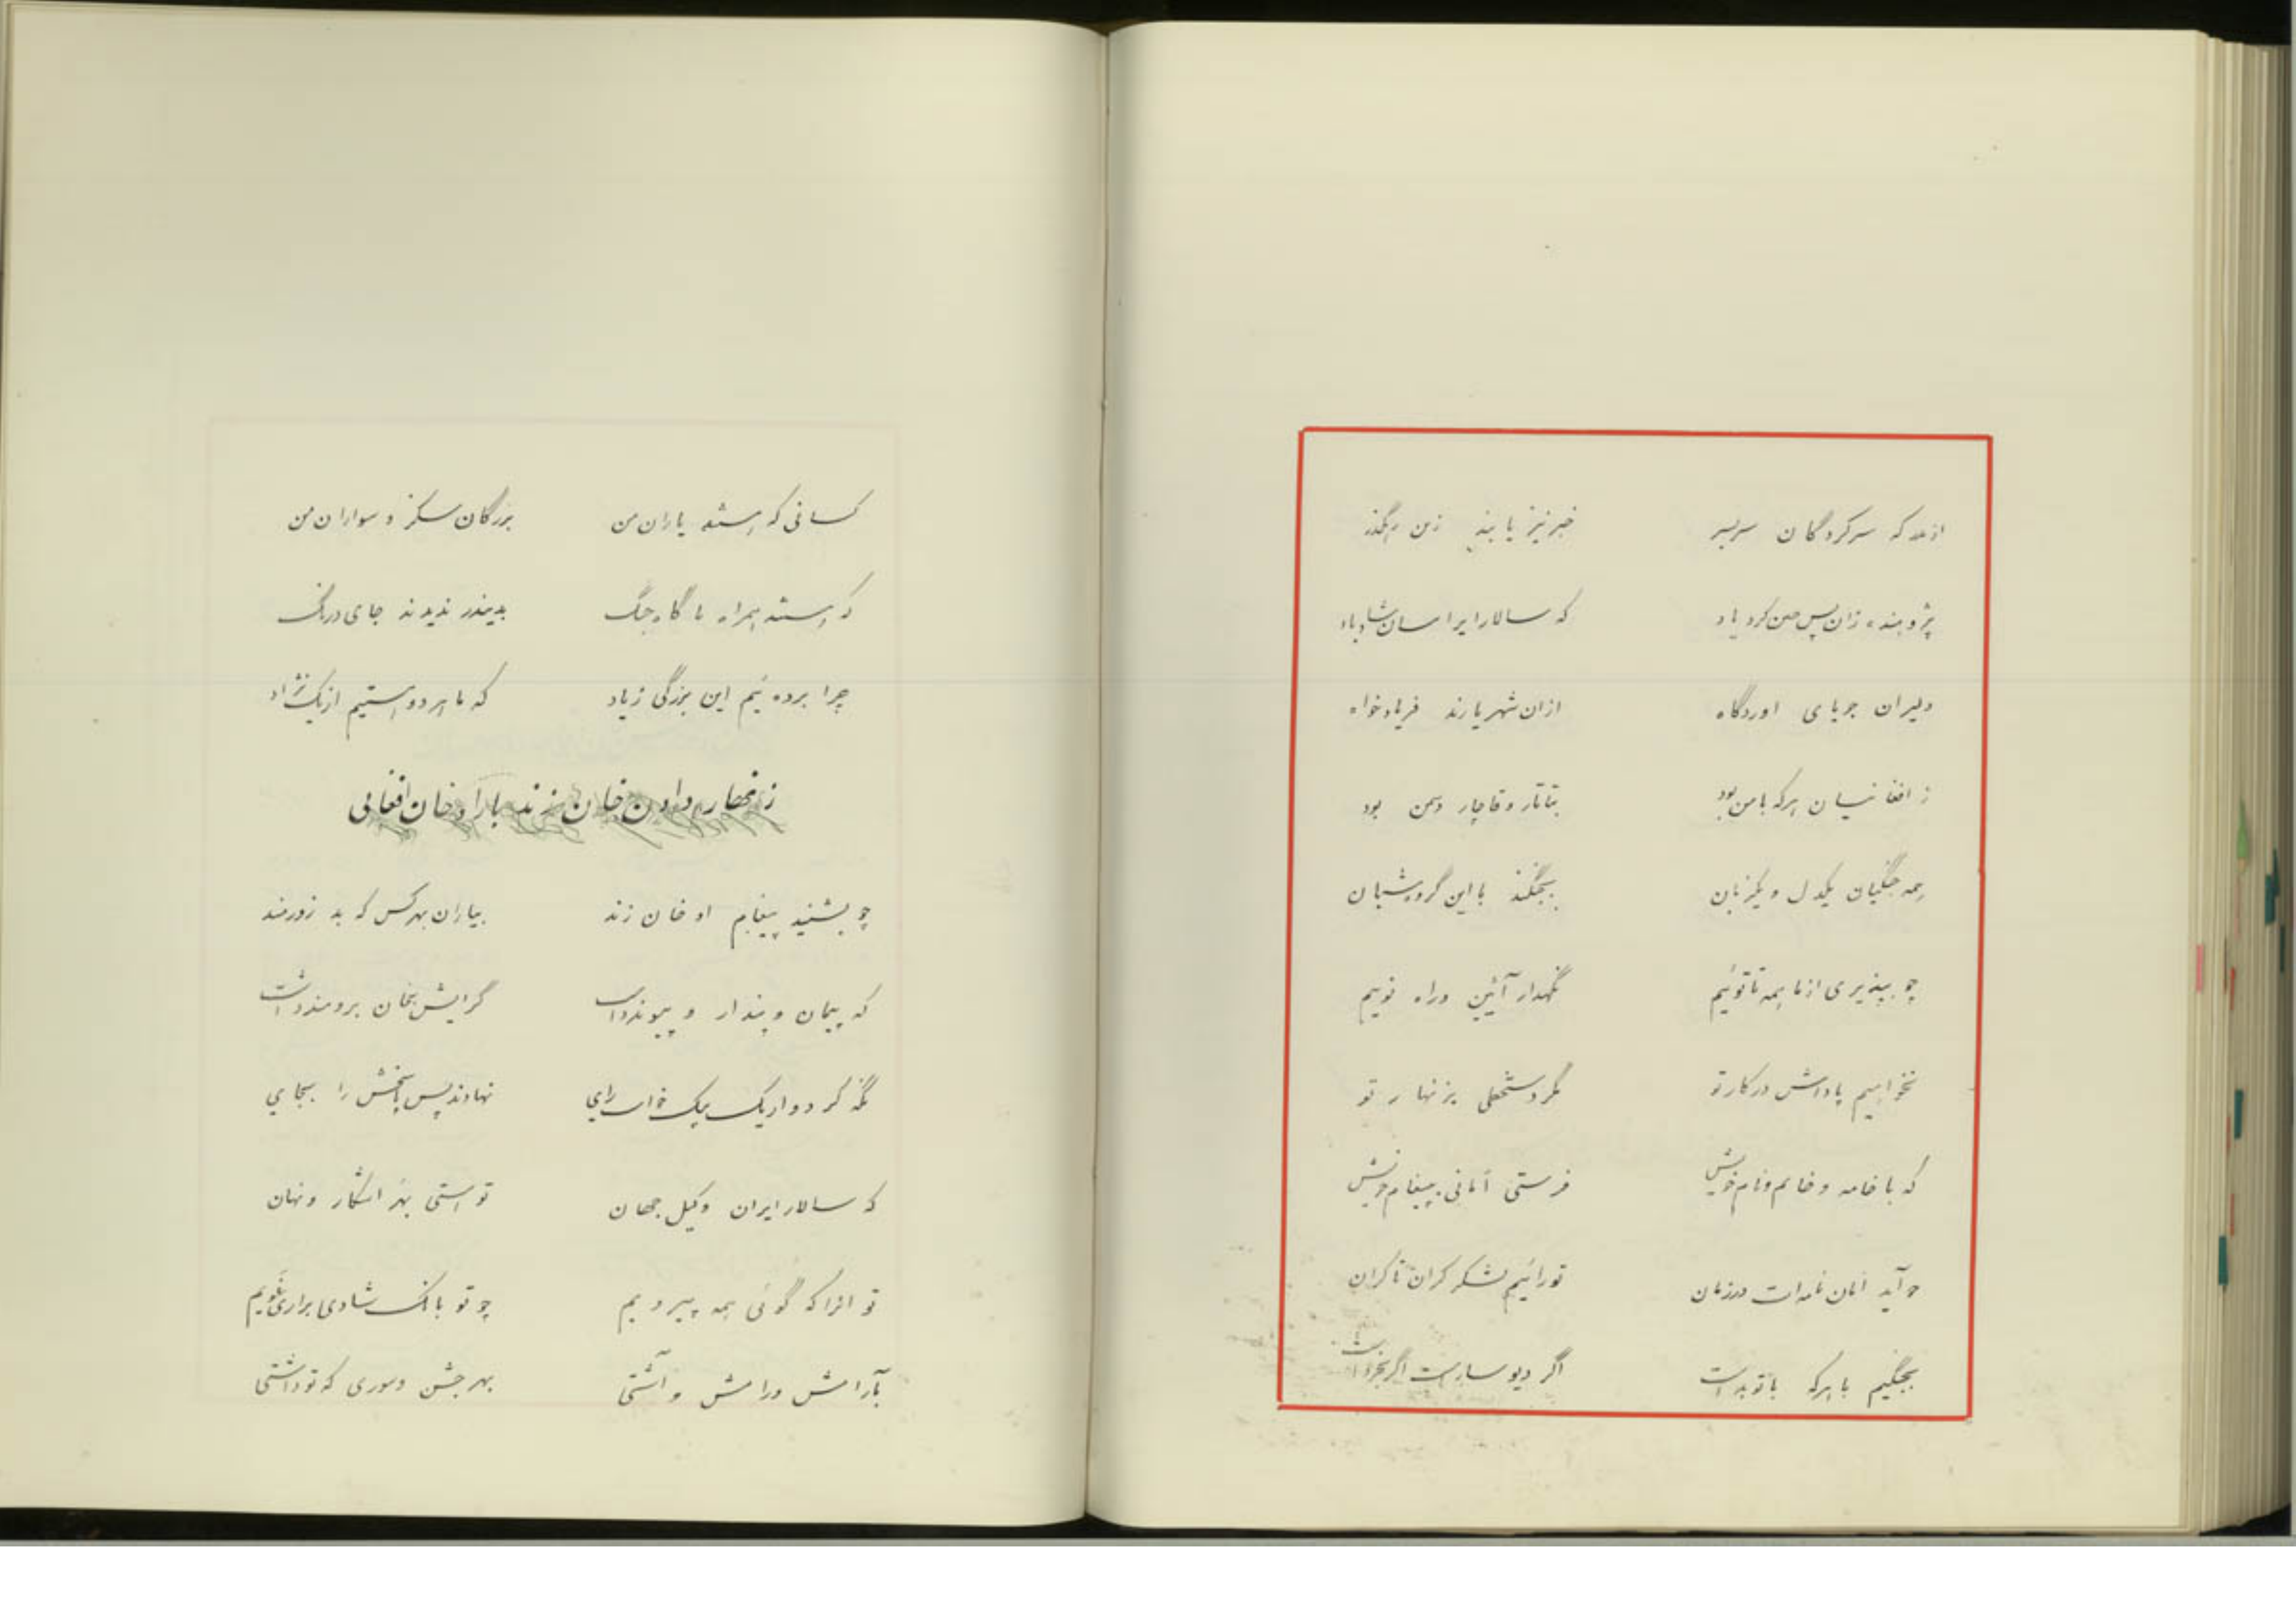 که سرکردگان سربسر خبر نیز یابند زین رهگذر
پژوهنده زان پس چنین کرد یاد که سالار ایران شاد باد
دلیران جویای اوردگاه ازان شهریارند فریادخواه
ز افغانیان هرکه با من بود بتاتار و قاجار دشمن بود
همه جنگیان یکدل و یکزبان بجنگند با این گروه شبان
چو بپذیری از ما همه تا توئیم نگهدار آئین و راه نویم
نخواهیم پاداش در کار تو مگر دستخطی بزنهار تو
که با خامه و خاتم و نام خویش فرستی امانی بپیغام خویش
چو آید امان نامه‌ات در زمان تورائیم لشکر کران تا کران
بجنگیم با هرکه با تو بداست اگر دیوسارست اگر بخرد است
کسانی که هستند یاران من بزرگان لشکر و سواران من
که هستند همراه ما گاه جنگ بدیندر ندیدند جای درنگ
چرا برده‌ئیم این بزرگی زیاد که ما هر دو هستیم از یک نژاد
زنهار دادن خان زند بازادخان افغانی
چو بشنید پیغام او خان زند بیاران بهرکس که بد زورمند
که پیمان و پندار و پیوند داشت گرایش بخان برومند داشت
نگه کرد و از یک بیک خواست رای نهادند پس پاسخش را بجای
که سالار ایران وکیل جهان تو هستی بهر اشکار و نهان
تو انرا که گوئی همه پیرویم چو تو بانگ شادی براری غویم
بآرامش و رامش و آشتی بهر جشن و سوری که تو داشتی